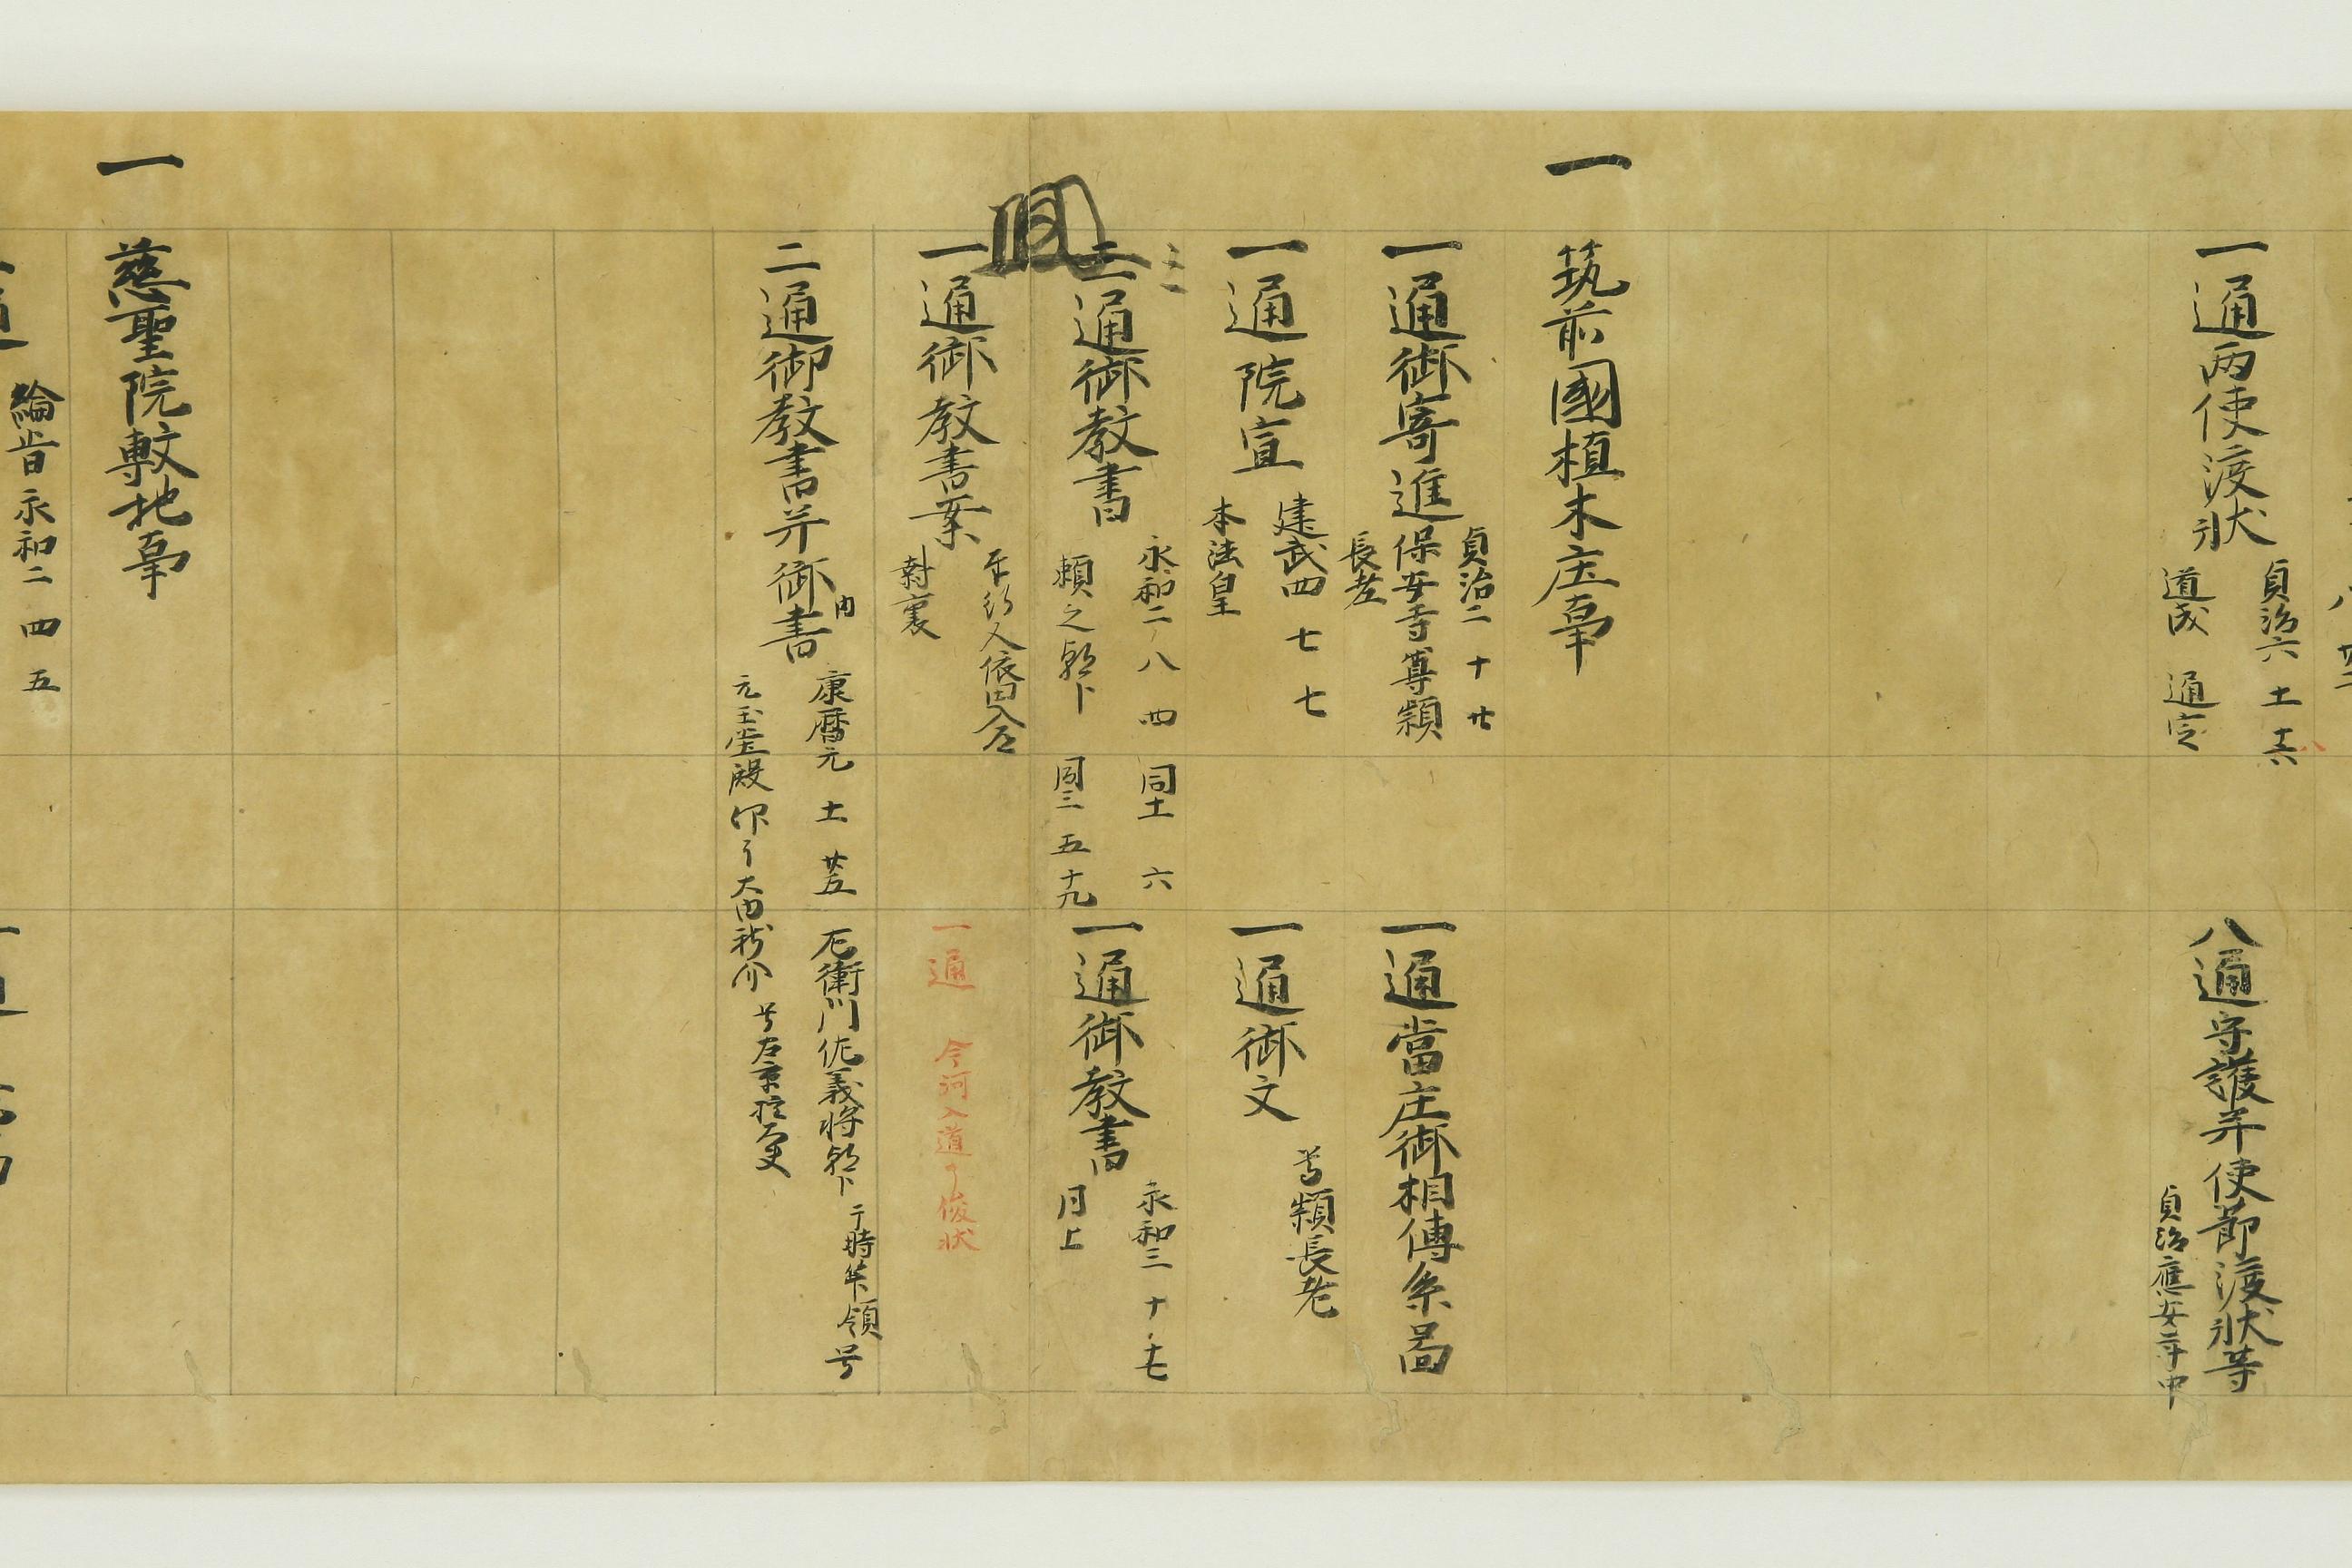 一通両使渡状
貞治六 十二 十六
道成 通定
八通守護并使節渡状等
貞治應安年中
一 筑前國植木庄事
一通御寄進
貞治二 十 廿
保安寺尊頴
長老
一通當庄御相傳系圖
一通院宣
建武四 七 七
本法皇
一通御文
尊頴長老
三
二通御教書
永和二 八 四
同十一 六
頼之朝臣
同三 五 十九
一通御教書
永和三 十 十七
同上
一通御教書案
奉行人依田入
封裏
一通 今河入道了俊状
二通御教書并御内書
康暦元 十二 廿五
左衛門佐義将朝臣
于時管領
元玉堂殿
大内新介
号左京権大夫
一 慈聖院敷地事
綸旨永和二 四 五